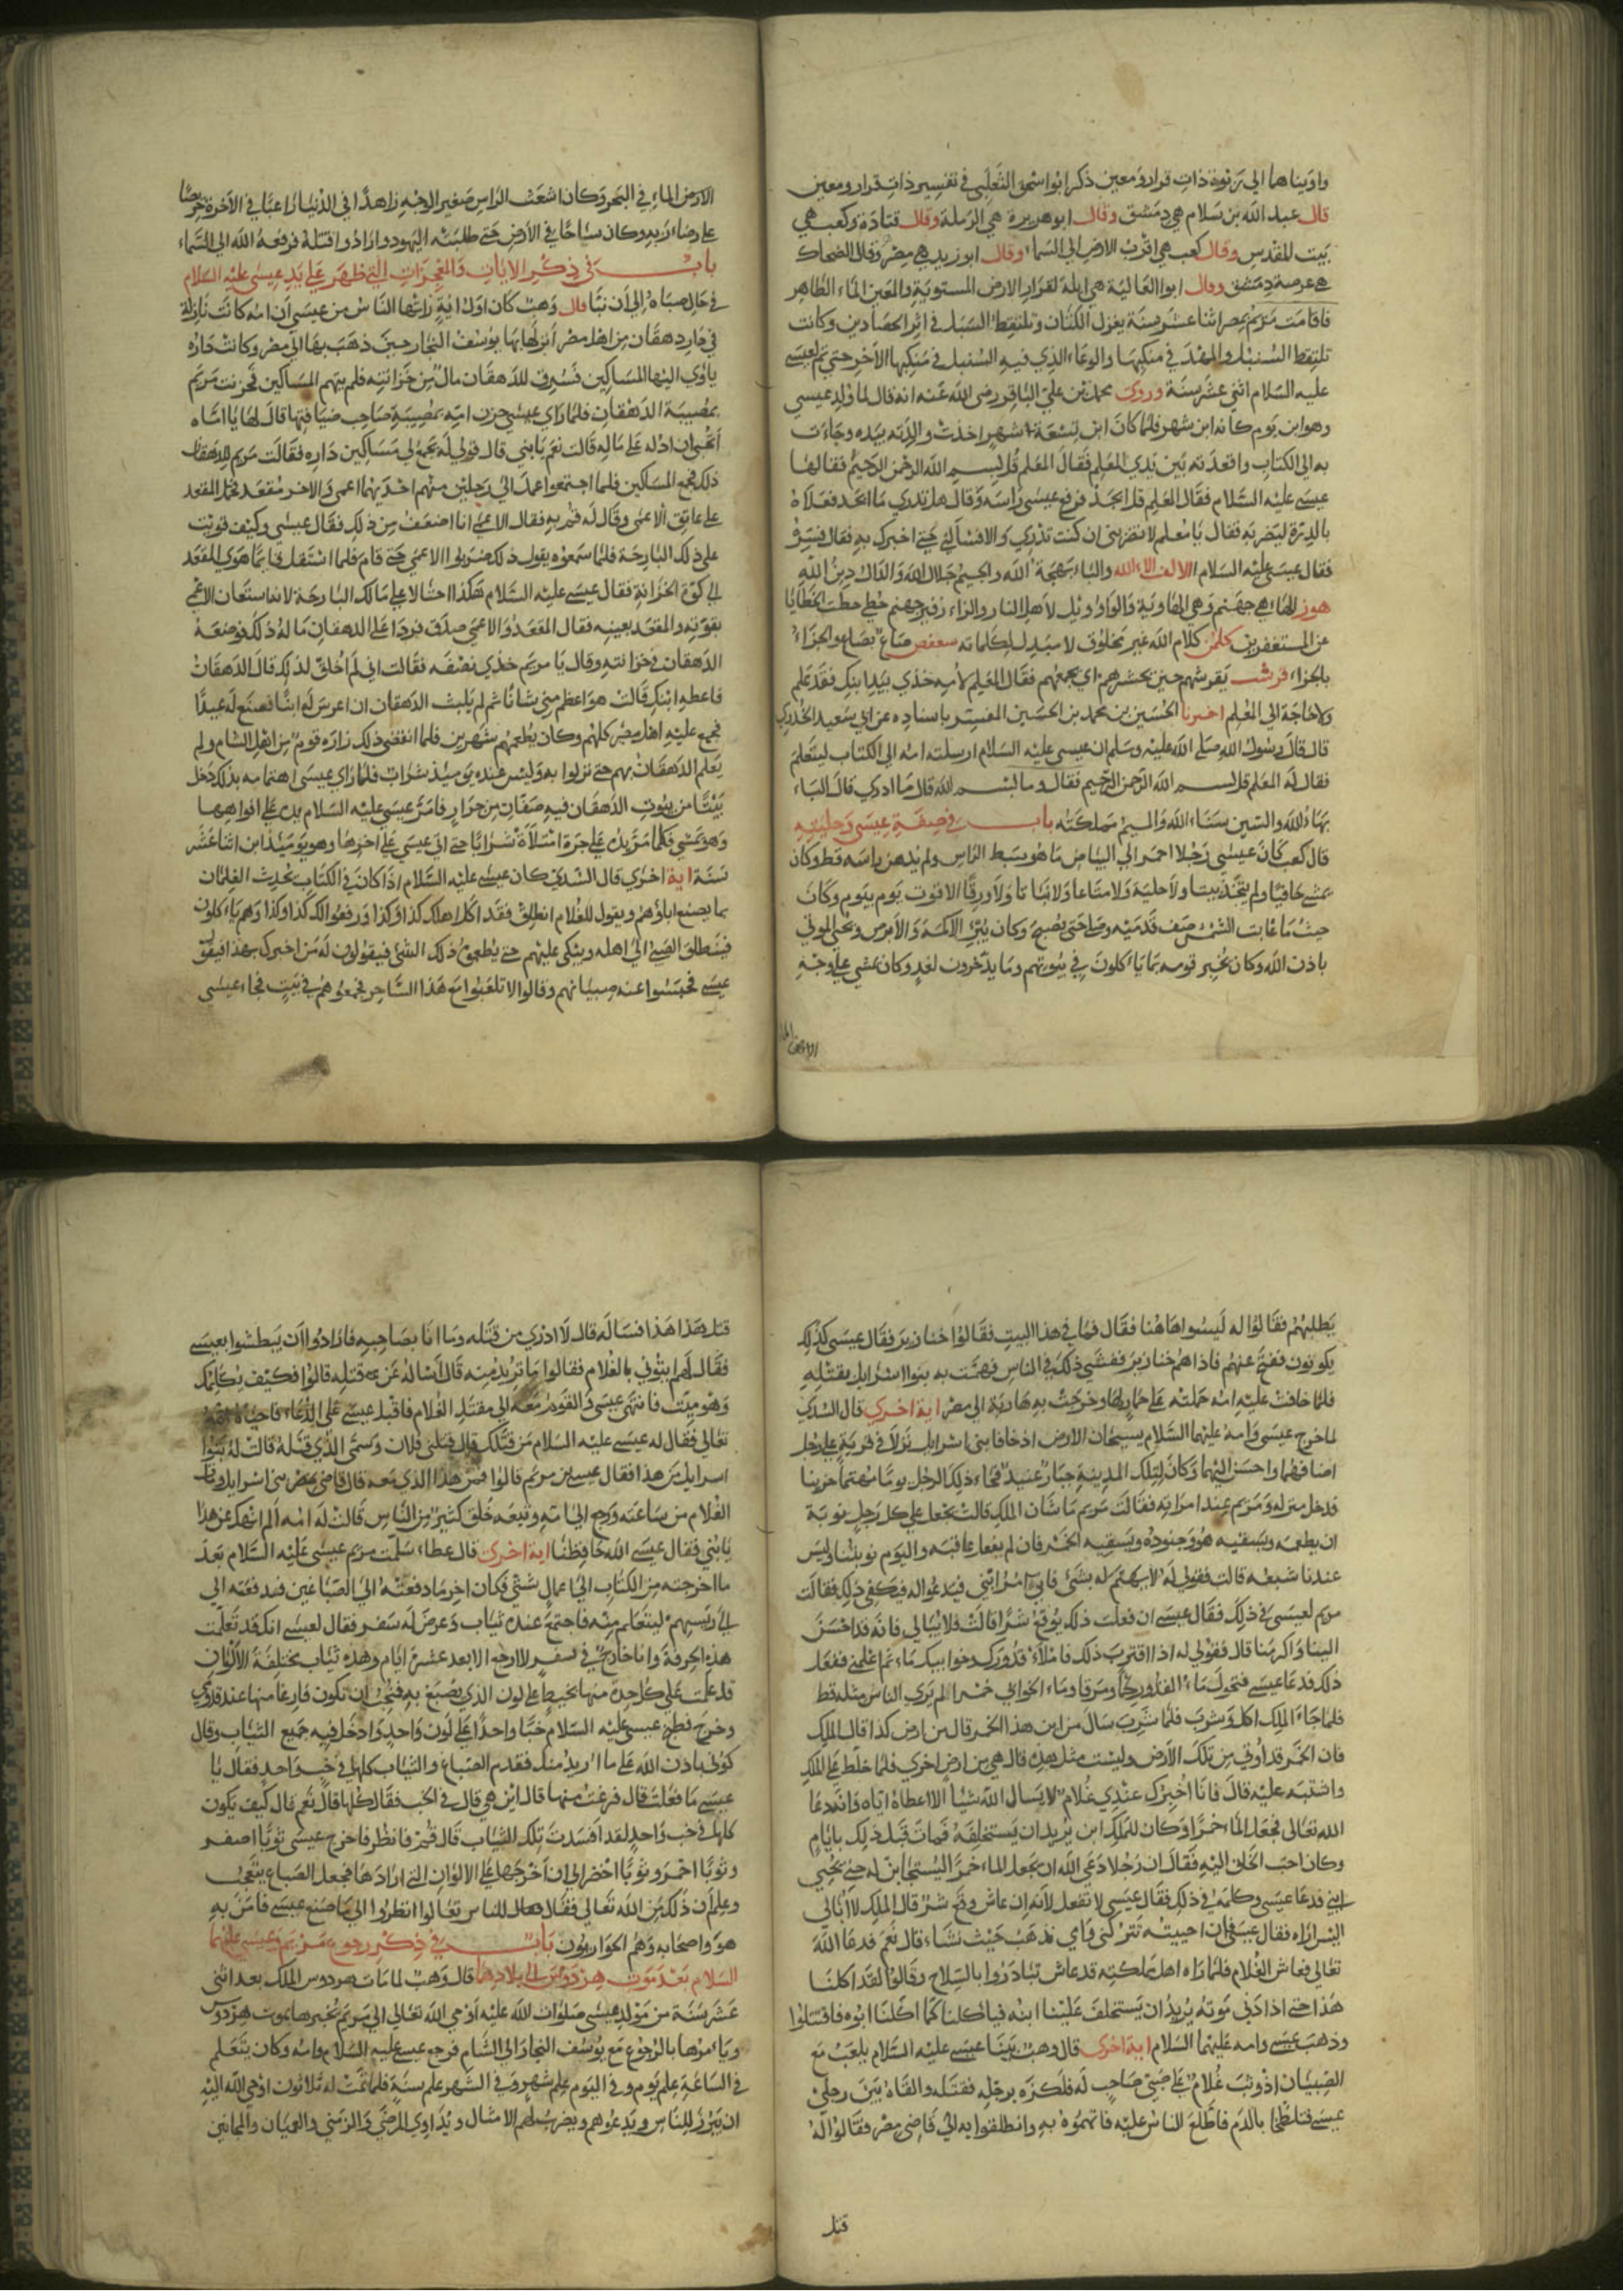 واويناهما الى ربوة ذات قرار ومعين ذكر ابو اسحق الثعلبي في تفسير ذات قرار ومعين
قال عبد الله بن سلام هي دمشق وقال ابو هريرة هي الرملة وقال قتادة وكعب هي
بيت المقدس وقال كعب هي اقرب الارض الى السماء وقال ابو زيد هي مصر وقال الضحاك
هي عرصة دمشق وقال ابو العالية هي ايلة لقرار الارض المستوية والمعين الماء الظاهر
فاقامت مريم بمصر اثنا عشر سنة يغزل الكتان وتلتقط السنبل في اثر الحصادين وكانت
تلتقط السنبل والمهد في منكبها والوعاء الذي فيه السنبل في منكبها الاخر حتى تم لعيسى
عليه السلام اثنى عشر سنة وروى محمد بن علي الباقر رضي الله عنه انه قال لما ولد عيسى
وهو ابن يوم كانه ابن شهر فلما كان ابن تسعة اشهر اخذت والدته بيده وجاءت
به الى الكتاب واقعدته بين يدي المعلم فقال المعلم قل بسم الله الرحمن الرحيم فقالها
عيسى عليه السلام فقال المعلم قل ابجد فرفع عيسى راسه وقال هل تدري ما ابجد فعلاه
بالدرة ليضربه فقال يا معلم لا تضربني ان كنت تدري والا فسالني حتى اخبرك به فقال فسر لي
فقال عيسى عليه السلام الالف الاء الله والباء بهجة الله والجيم جلال الله والدال دين الله
هوز الهاء هي جهنم وهي الهاوية والواو ويل لاهل النار والزاء زفير جهنم حطي حطت الخطايا
عن المستغفرين كلمن كلام الله غير مخلوق لا مبدل لكلماته سعفص صاع بصاع والجزاء
بالجزاء قرشت يقرشهم حين يحشرهم اي يجمعهم فقال المعلم لامه خذي بيد ابنك فقد علم
ولا حاجة الى المعلم اخبرنا الحسين بن محمد بن الحسين المفسر باسناده عن ابي سعيد الخدري
قال قال رسول الله صلى الله عليه وسلم ان عيسى عليه السلام ارسلته امه الى الكتاب ليتعلم
فقال له المعلم قل بسم الله الرحمن الرحيم فقال وما بسم الله قال ما ادري قال الباء
بهاء الله والسين سناء الله والميم مملكته باب في صفة عيسى وحليته
قال كعب كان عيسى رجلا احمر الى البياض ما هو سبط الراس ولم يدهن راسه قط وكان
يمشي حافيا ولم يتخذ بيتا ولا حلية ولا متاعا ولا ثيابا ولا ورقا الا قوت يوم بيوم وكان
حيث ما غابت الشمس صف قدميه وصلى حتى يصبح وكان يبرئ الاكمه والابرص ويحيي الموتى
باذن الله وكان يخبر قومه بما ياكلون في بيوتهم وما يدخرون لغد وكان يمشي على وجه
الارض الماء في البحر وكان اشعث الراس صغير الوجه زاهدا في الدنيا راغبا في الاخرة حريصا
على رضاء ربه وكان سياحا في الارض حتى طلبته اليهود وارادوا قتله فرفعه الله الى السماء
باب في ذكر الايات والمعجزات التي ظهر على يد عيسى عليه السلام
في حال صباه الى ان نبا قال وهب كان اول اية راتها الناس من عيسى ان امه كانت نازلة
في دار دهقان من اهل مصر انزلها بها يوسف النجار حين ذهب بها الى مصر وكانت داره
ياوي اليها المساكين فسرق للدهقان مال من خزانته فلم يتهم المساكين فحزنت مريم
بمصيبة الدهقان فلما راي عيسى حزن امه بمصيبة صاحب ضيافتها قال لها يا اماه
اتحبين ان ادله على ماله قالت نعم يا بني قال قولي له يجمع لي مساكين داره فقالت مريم للدهقان
ذلك فجمع المساكين فلما اجتمعوا عمد الى رجلين منهم احدهما اعمى والاخر مقعد فحمل المقعد
على عاتق الاعمى وقال له قم به فقال الاعمى انا اضعف من ذلك فقال عيسى وكيف قويت
على ذلك البارحة فلما سمعوه يقول ذلك ضربوا الاعمى حتى قام فلما استقل قائما هوى المقعد
الى كوة الخزانة فقال عيسى عليه السلام هكذا احتالا على مالك البارحة لانه استعان الاعمى
بقوته والمقعد بعينه فقال المقعد والاعمى صدق فردا على الدهقان ماله ذلك فوضعه
الدهقان في خزانته وقال يا مريم خذي نصفه فقالت اني لم اخلق لذلك قال الدهقان
فاعطه ابنك قالت هو اعظم مني شانا ثم لم يلبث الدهقان ان اعرس له ابنا فصنع له عيدا
فجمع عليه اهل مصر كلهم وكان يطعمهم شهرين فلما انقضى ذلك زاره قوم من اهل الشام ولم
يعلم الدهقان بهم حتى نزلوا به وليس عنده يومئذ شراب فلما راي عيسى اهتمامه بذلك دخل
بيتا من بيوت الدهقان فيه صفان من جرار فامر عيسى عليه السلام يده على افواهها
وهو يمشي فكلما مر يده على جرة امتلات شرابا حتى اتى عيسى على اخرها وهو يومئذ ابن اثنا عشر
سنة اية اخرى قال السدي كان عيسى عليه السلام اذا كان في الكتاب يحدث الغلمان
بما يصنع اباؤهم ويقول للغلام انطلق فقد اكل اهلك كذا وكذا ورفعوا لك كذا وكذا وهم ياكلون
فينطلق الصبي الى اهله ويبكي عليهم حتى يطعموه ذلك الشئ فيقولون له من اخبرك بهذا فيقول
عيسى فحبسوا عنه صبيانهم وقالوا لا تلعبوا مع هذا الساحر فجمعوهم في بيت فجاء عيسى
يطلبهم فقالوا له ليسوا هاهنا فقال فما في هذا البيت فقالوا خنازير فقال عيسى كذلك
يكونون ففتح عنهم فاذا هم خنازير ففشى ذلك في الناس فهمت به بنوا اسرائيل بقتله
فلما خافت عليه امه حملته على حمار لها وخرجت به هاربة الى مصر اية اخرى قال السدي
لما خرج عيسى وامه عليهما السلام يسيحان الارض اذ خافا بني اسرائيل نزلا في قرية على رجل
اضافهما واحسن اليهما وكان لتلك المدينة جبار عنيد فجاء ذلك الرجل يوما مهتما حزينا
فدخل منزله ومريم عند امراته فقالت مريم ما شان الملك قالت يجعل على كل رجل نوبة
ان يطعمه ويسقيه هو وجنوده ويسقيه الخمر فان لم يفعل عاقبه واليوم نوبتنا وليس
عندنا شبعه قالت فقولي له لا يهتم له بشئ فاني امر ابني فيدعو اله فيكفي ذلك فقالت
مريم لعيسى في ذلك فقال عيسى ان فعلت ذلك يوقع شرا قالت فلا تبالي فانه قد احسن
الينا واكرمنا قال فقولي له اذا اقترب ذلك فاملاء قدورك وخوابيك ماء ثم اعلمني ففعل
ذلك فدعا عيسى فتحول ماء القدور لحما ومرقا وماء الخوابي خمرا لم يرى الناس مثله قط
فلما جاء الملك اكل وشرب فلما شرب سال من اين هذا الخمر قال من ارض كذا قال الملك
فان الخمر قد اوتي من تلك الارض وليست مثل هذه قال هي من ارض اخرى فلما خلط على الملك
واشتبه عليه قال فانا اخبرك عندي غلام لا يسال الله شيئا الا اعطاه اياه وانه دعا
الله تعالى فجعل الماء خمرا وكان للملك ابن يريد ان يستخلفه فمات قبل ذلك بايام
وكان احب الخلق اليه فقال ان رجلا دعى الله ان يجعل الماء خمرا ليستجابن له حتى يحيى
ابني فدعا عيسى وكلمه في ذلك فقال عيسى لا تفعل لانه ان عاش وقع شر قال الملك لا ابالي
اليس اراه فقال عيسى فان احييته تتركني وامي نذهب حيث نشاء قال نعم فدعا الله
تعالى فعاش الغلام فلما راه اهل مملكته قد عاش تبادروا بالسلاح وقالوا لقد اكلنا
هذا حتى اذا دنى موته يريد ان يستخلف علينا ابنه فياكلنا كما اكلنا ابوه فاقتتلوا
وذهب عيسى وامه عليهما السلام اية اخرى قال وهب بينا عيسى عليه السلام يلعب مع
الصبيان اذ وثب غلام على صبي صاحب له فلكزه برجله فقتله والقاه بين رجلي
عيسى فتلطخ بالدم فاطلع الناس عليه فاتهموه به وانطلقوا به الى قاضي مصر فقالوا له
قتل
قتل هذا هذا فساله قال لا ادري من قتله وما انا بصاحبه فارادوا ان يبطشوا بعيسى
فقال لهم ايتوني بالغلام فقالوا ما تريد منه قال اساله عن من قتله قالوا فكيف يكلمك
وهو ميت فانتهى عيسى والقوم معه الى مقتل الغلام فاقبل عيسى على الدعاء فاحياه الله
تعالى فقال له عيسى عليه السلام من قتلك قال قتلني فلان وسمى الذي قتله قالت له بنوا
اسرائيل من هذا فقال عيسى بن مريم قالوا فمن هذا الذي معه قال قاضي مصر بني اسرائيل ومات
الغلام من ساعته ورجع الى امه وتبعه خلق كثير من الناس قالت له امه الم انهك عن هذا
يا بني فقال عيسى الله حافظنا اية اخرى قال عطاء سلمت مريم عيسى عليه السلام بعد
ما اخرجته من الكتاب الى اعمال شتى فكان اخر ما دفعته الى الصباغين فدفعته الى
الى رئيسهم ليتعلم منه فاجتمع عنده ثياب وعرض له سفر فقال لعيسى انك قد تعلمت
هذه الحرفة وانا خارج في سفر لا ارجع الا بعد عشر ايام وهذه ثياب مختلفة الالوان
قد علمت على كل واحدة منها بخيط على لون الذي يصبغ به فيجب ان تكون فارغا منها عند قدومي
وخرج فطبخ عيسى عليه السلام حبا واحدا على لون واحد وادخل فيه جميع الثياب وقال
كوني باذن الله على ما اريد منك فقدم الصباغ والثياب كلها في حب واحد فقال يا
عيسى ما فعلت قال فرغت منها قال اين هي قال في الحب فقال كلها قال نعم قال كيف يكون
كلها في حب واحد لقد افسدت تلك الثياب قال قم فانظر فاخرج عيسى ثوبا اصفر
وثوبا احمر وثوبا اخضر الى ان اخرجها على الالوان التي ارادها فجعل الصباغ يتعجب
وعلم ان ذلك من الله تعالى فقال للناس تعالوا انظروا الى ما صنع عيسى فامن به
هو واصحابه وهم الحواريون باب في ذكر رجوع مريم وعيسى عليهما
السلام بعد موت هردوس الى بلادهما قال وهب لما مات هردوس الملك بعد اثنى
عشر سنة من مولد عيسى صلوات الله عليه اوحى الله تعالى الى مريم يخبرها بموت هردوس
ويامرها بالرجوع مع يوسف النجار الى الشام فرجع عيسى عليه السلام وامه وكان يتعلم
في الساعة علم يوم وفي اليوم علم شهر وفي الشهر علم سنة فلما تمت له ثلاثون اوحى الله اليه
ان يبرز للناس ويدعوهم ويضرب لهم الامثال ويداوي المرضى والزمنى والعميان والمجانين